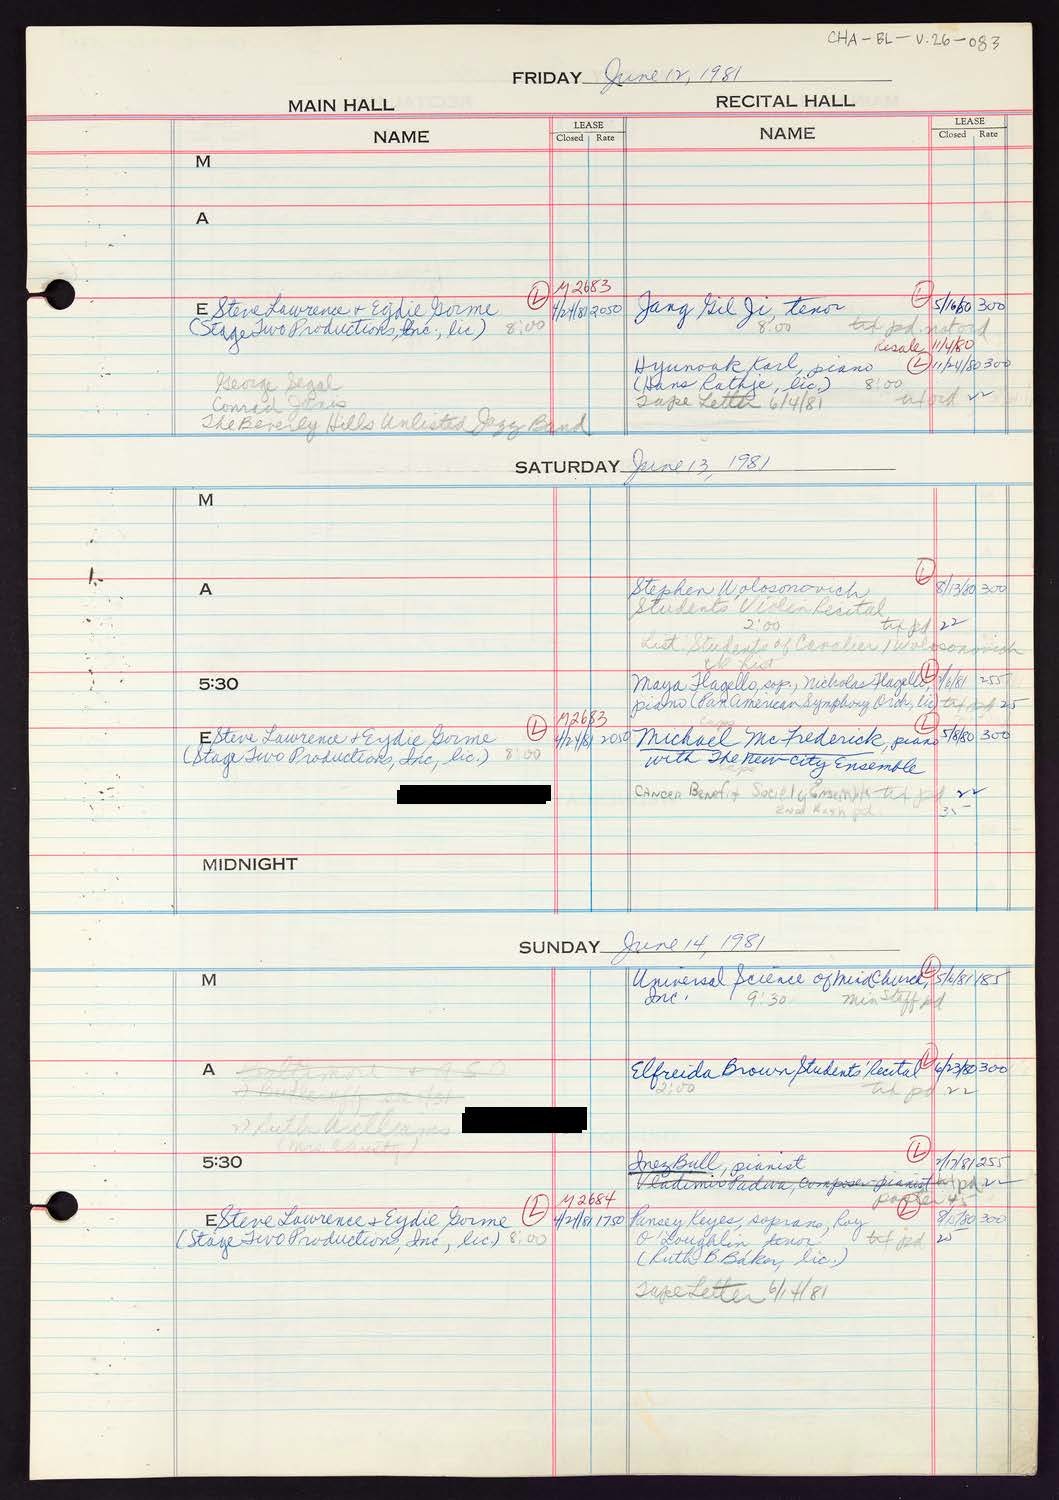 CHA-BL-V.26-083
FRIDAY June 12, 1981
MAIN HALL RECITAL HALL
NAME LEASE Closed Rate NAME LEASE Closed Rate
M
A
M2683
E Steve Lawrence + Eydie Gorme L 4/24/81 2050 Jang Gil Ji, tenor L 5/16/80 300
(Stage Two Productions, Inc., lic) 8:00 8:00 txt pd. not ord
Resale 11/4/80
Hyunoak Karl, piano L 11/24/80 300
George Segal (Hans Rathje, lic.) 8:00
Conrad Janis Tape Letter 6/4/81 txt ord 22
The Beverly Hills Unlisted Jazz Band
SATURDAY June 13, 1981
M
L
A Stephen Wolosonovich 8/13/80 300
Students Violin Recital
2:00 txt pd 22
List Students of Cavalier / Wolosonovich
5:30 Maya Flagello, sop., Nicholas Flagello, L /6/81 255
piano (Pan American Symphony Orch, lic) txt pd 25
M2683
E Steve Lawrence + Eydie Gorme L 4/24/81 2050 Michael McFrederick, piano L 5/8/80 300
(Stage Two Productions, Inc, lic.) 8:00 with The New City Ensemble
CANCER Benefit Society Ensemble txt pd 22
pd. 35
MIDNIGHT
SUNDAY June 14, 1981
M Universal Science of Mind Church, L 5/6/81 185
Inc. 9:30 Min Staff pd
A Elfreida Brown Students' Recital L 6/23/80 300
2:00 txt pd 22
2) Ruth Williams
5:30 Inez Bull, pianist L 2/17/81 255
Vladimir Padwa, composer-pianist txt pd 22
M2684
E Steve Lawrence + Eydie Gorme L 4/24/81 1750 Pansey Keyes, soprano, Roy L 300
(Stage Two Productions, Inc, lic) 8:00 O'Loughlin tenor txt pd 25
(Ruth B. Baker, lic.)
Tape Letter 6/14/81